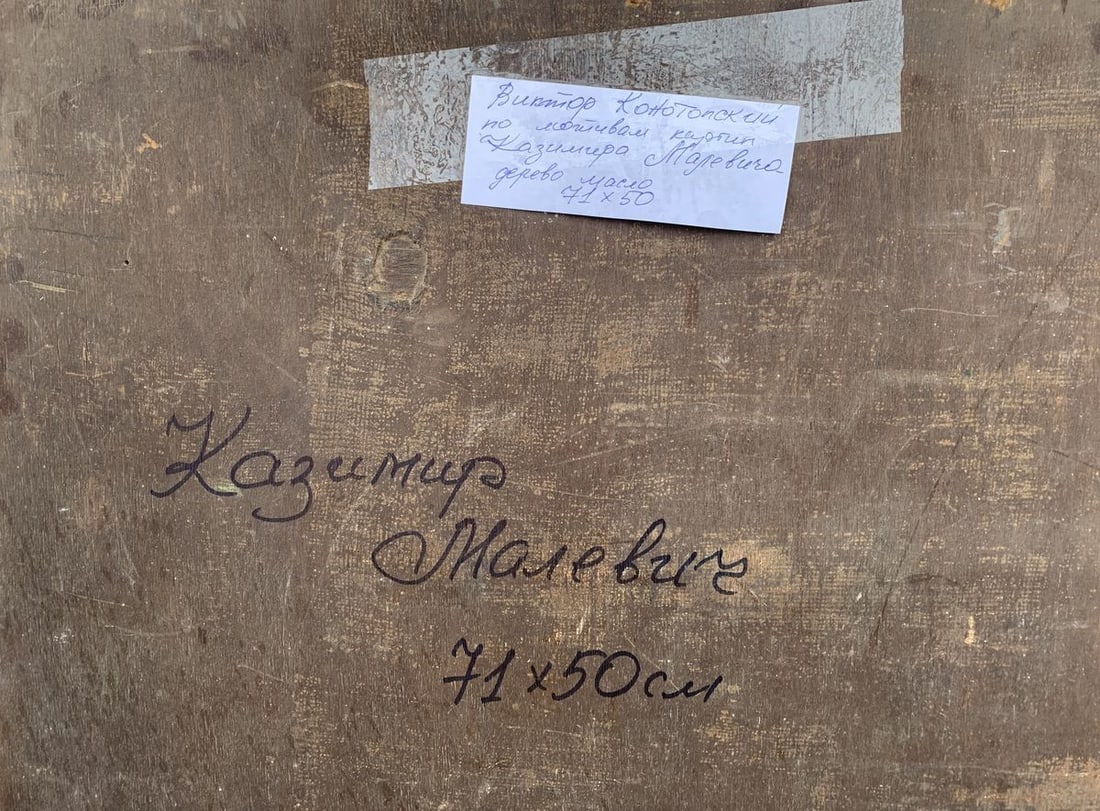 Виктор Конотопский
по мотивам картин
Казимира Малевича
дерево масло
71×50
Казимир
Малевич
71×50см